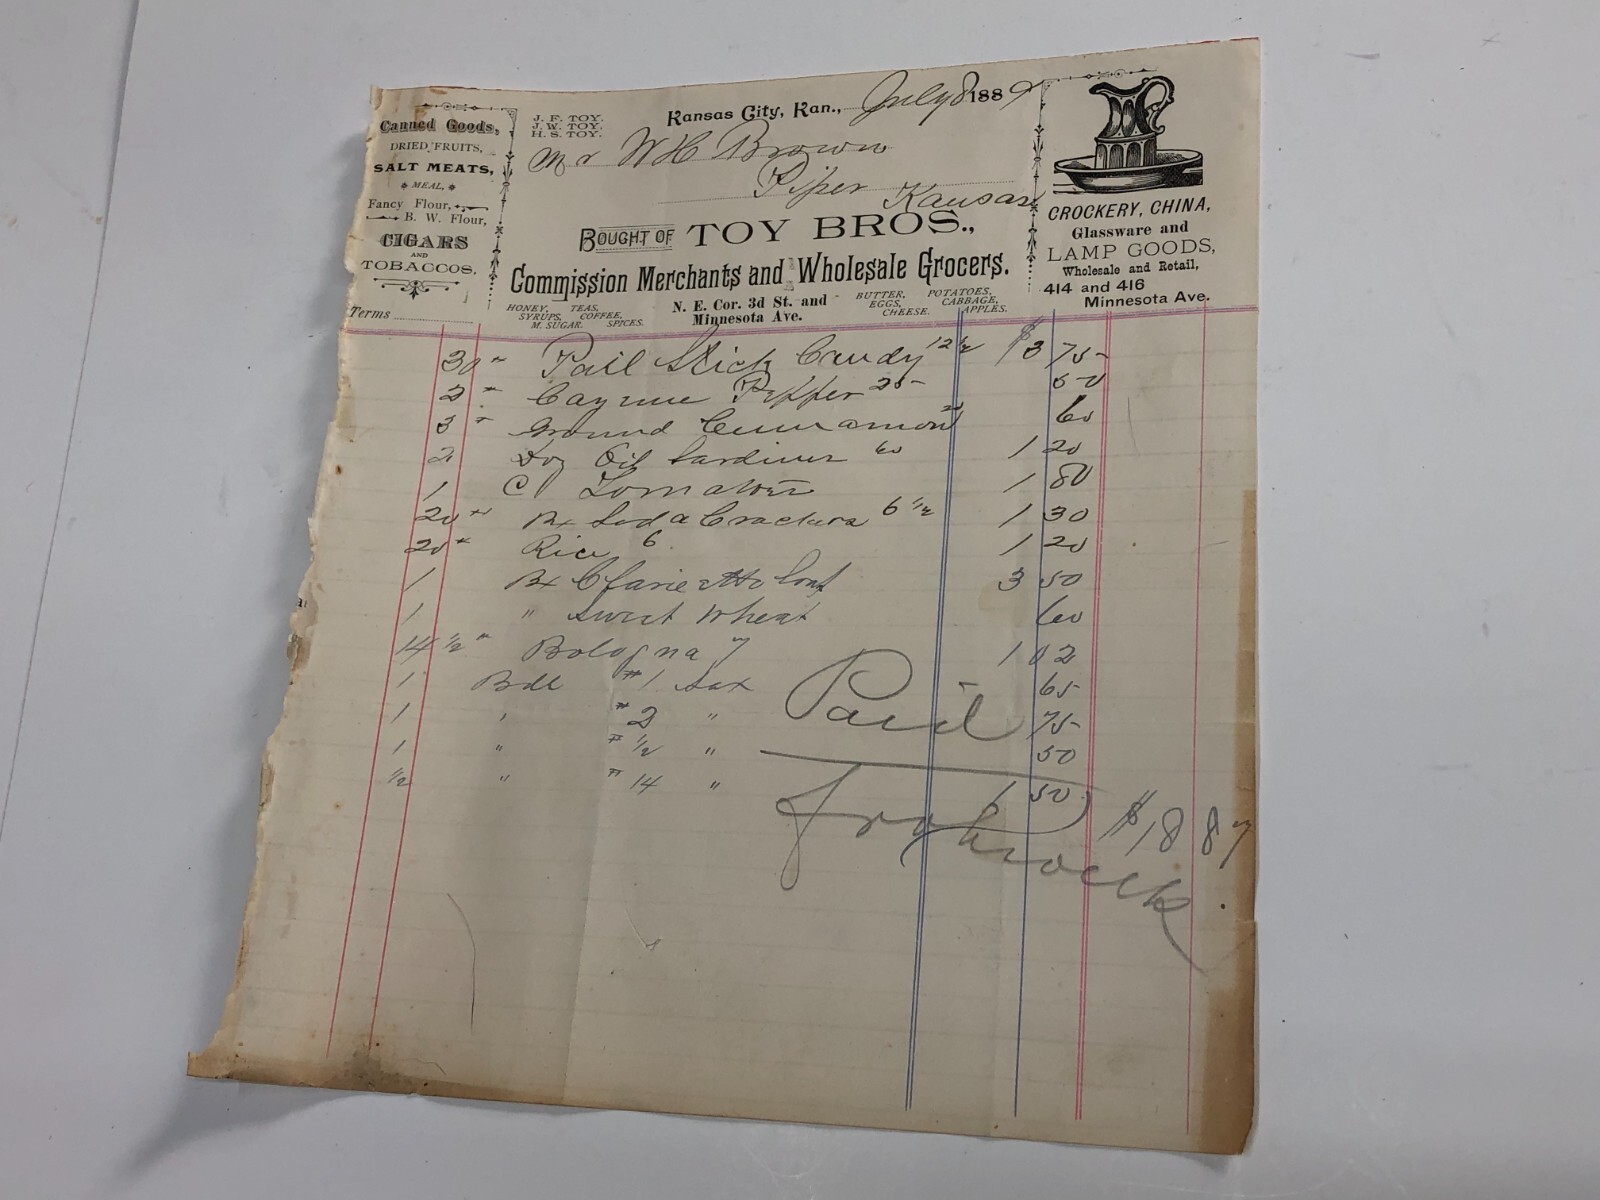 Canned Goods,
DRIED FRUITS,
SALT MEATS,
MEAL,
Fancy Flour,
B. W. Flour,
CIGARS
AND
TOBACCOS,
Terms
J. F. TOY.
J. W. TOY.
H. S. TOY.
Kansas City, Kan., July 8 1889
Mr W H Brown
Piper Kansas
BOUGHT OF TOY BROS.,
Commission Merchants and Wholesale Grocers.
HONEY, TEAS,
SYRUPS, COFFEE,
M. SUGAR. SPICES.
N. E. Cor. 3d St. and
Minnesota Ave.
BUTTER, POTATOES,
EGGS, CABBAGE,
CHEESE. APPLES.
CROCKERY, CHINA,
Glassware and
LAMP GOODS,
Wholesale and Retail,
414 and 416
Minnesota Ave.
30 " Pail Stick Candy 12 1/2 $3 75
2 " Cayenne Pepper 25 50
3 " Ground Cinnamon 20 60
2 Doz Oil Sardines 60 1 20
1 C Tomatoes 1 80
20 " Bx Soda Crackers 6 1/2 1 30
20 " Rice 6 1 20
1 Bx 3 50
1 " Sweet Wheat 60
14 1/2 " Bologna 7 1 02
1 Bdl #1 Sax 65
1 " #2 " 75
1 " #1/2 " 50
1/2 " #14 " 1 50
$18 87
Paid